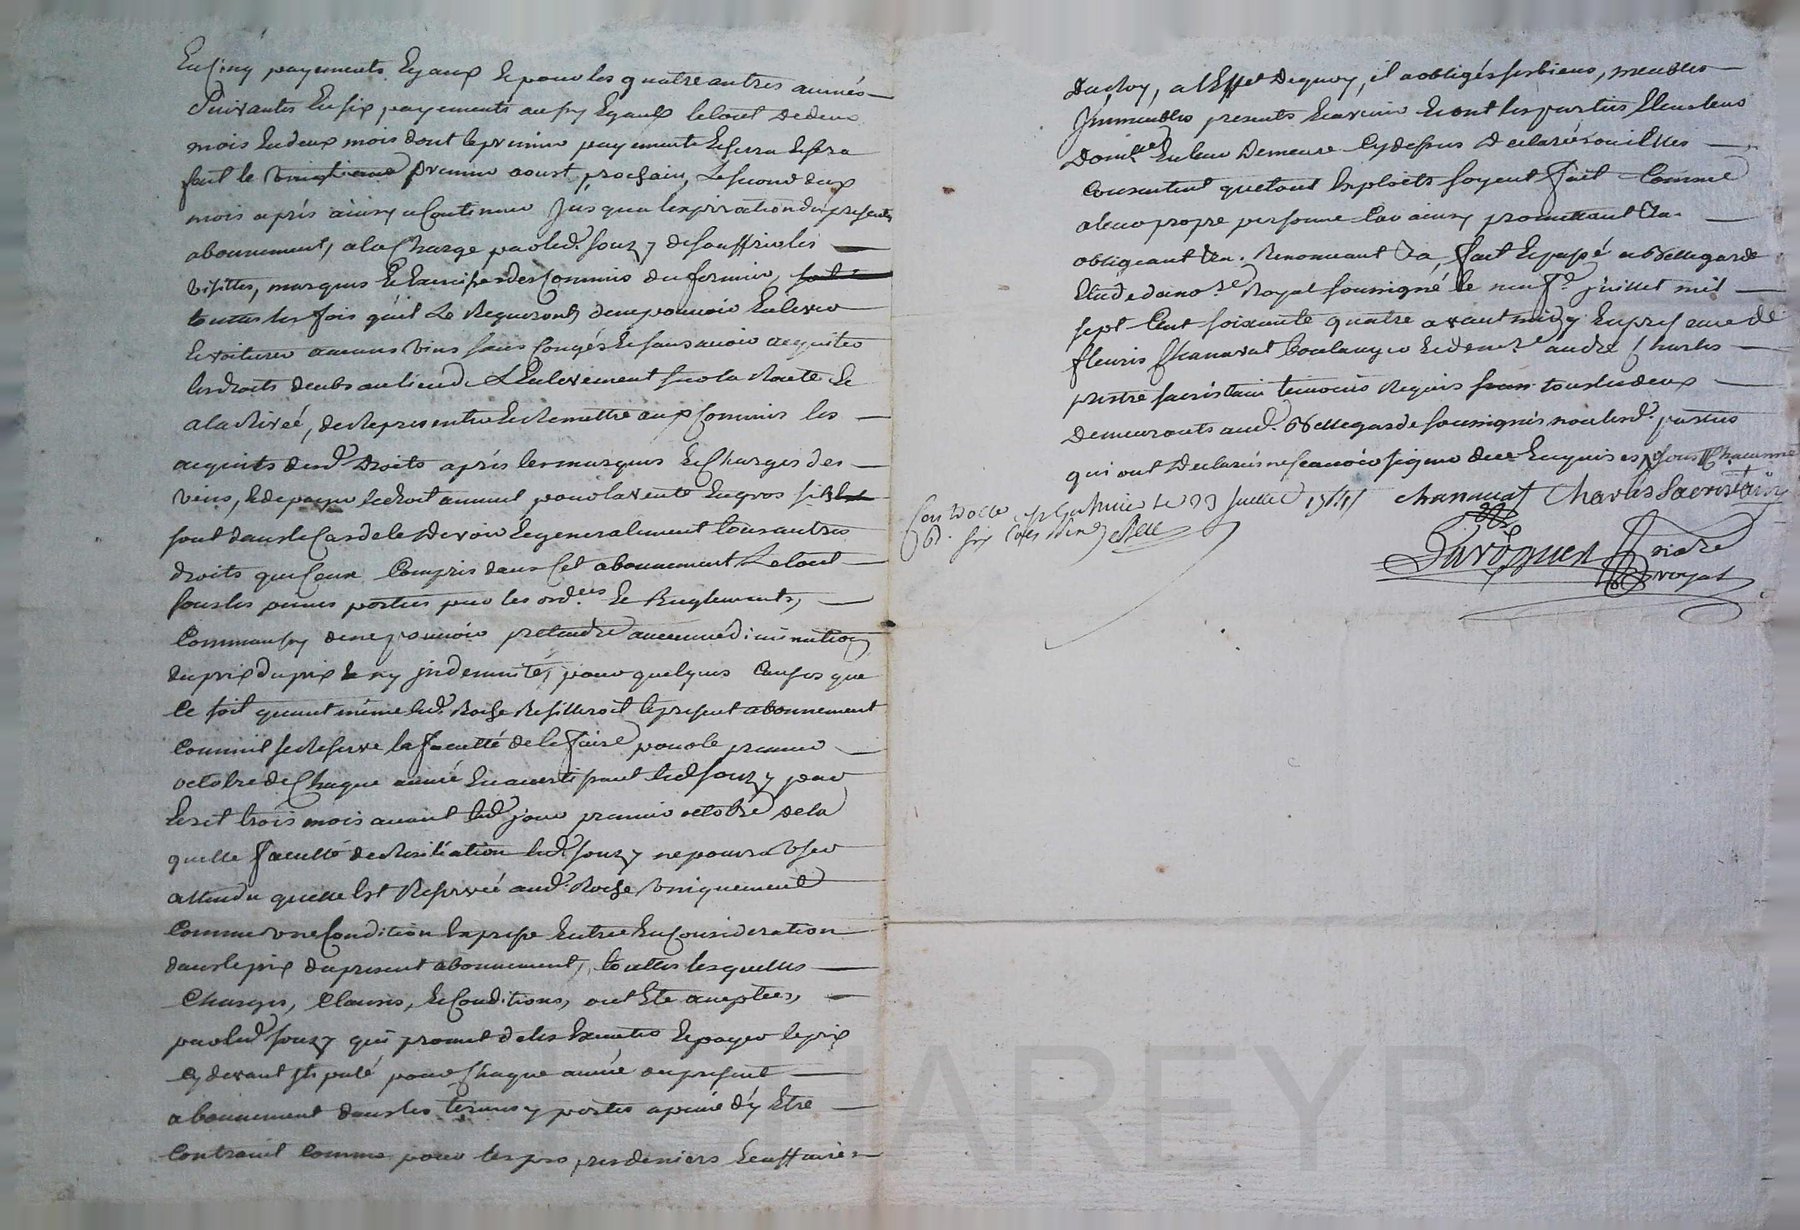 En cinq payements Egaux Et pour les quatre autres années
Suivantes En six payements aussy Egaux le tout de deux
mois En deux mois dont le premier payement Eschera Et sera
fait le vingtieme premier aoust prochain, Le second deux
mois après ainsy a Continuer Jusqua lexpiration du present
abonnement, a la Charge par led. Souzy de souffrir les
visittes, marques Et Exercices des Commis du fermier,
touttes les fois qu'il Le Requeront, de ne pouvoir Enlever
Et voiturer aucuns vins sans Congés Et sans avoir acquittés
les droits deubs au lieu de LEnlevement sur la Route Et
a larivéé, de Representer Et Remettre aux Commis les
acquits desd. Droits après les marques Et Charges des
vins, Et de payer Le droit annuel pour la vente En gros sil Est
sont dans le Cas de le Devoir Et generalement tous autres
droits que Ceux Compris dans Cet abonnement Le tout
sous les peines portées par les ord.ces Et Reglements,
Comm'aussy de ne pouvoir pretendre aucunne diminution
du prix du prix Et ny jndemnité, pour quelques Causes que
Ce soit quant même led. Roche Resilleroit le present abonnement
Comm'il se Reserve la faculté de le faire pour le premier
octobre de Chaque année En avertissant led. Souzy par
Ecrit trois mois avant led. jour premier octobre de la
quelle faculté de Resiliation led. Souzy ne pourra User
attendu quelle Est Reservéé aud. Roche Uniquement
Comme une Condition Expresse Entréé En Consideration
dans le prix du present abonnement, touttes lesquelles
Charges, Clauses, Et Conditions, ont Eté acceptées,
par led. Souzy qui promet de les Executer Et payer le prix
Cy devant stipulé pour Chaque année du present
abonnement dans les termes y portés a peine d'y Etre
Contraint Comme pour les propres deniers Et affaires
Du Roy, a lEffet De quoy, il a obligés ses biens, meubles
Jmmeubles presents Et avenir Et ont les parties Eleu leurs
Domicile En leur Demeure Cy dessus Declaréé ou illes
Consentent que tout Exploits soyent fait Comme
a leur propre personne Car ainsy promettant &a.
obligeant &a. Renonceant &a, fait Et passé a Bellegarde
Etude du no.re Royal soussigné le neuf.e juillet mil
sept Cent soixante quatre avant midy En presence de
fleuris Chanavat boulanger andré Charles
prestre sacristain temoins Requis tous les deux
Demeurants aud. Bellegarde soussignés non lesd. parties
qui ont Declarés ne scavoir signer de ce Enquises
Controllé a St Galmier le 23 Juillet
six sols
Chanavat Charles Sacristain
notre
royal
HAREYRON